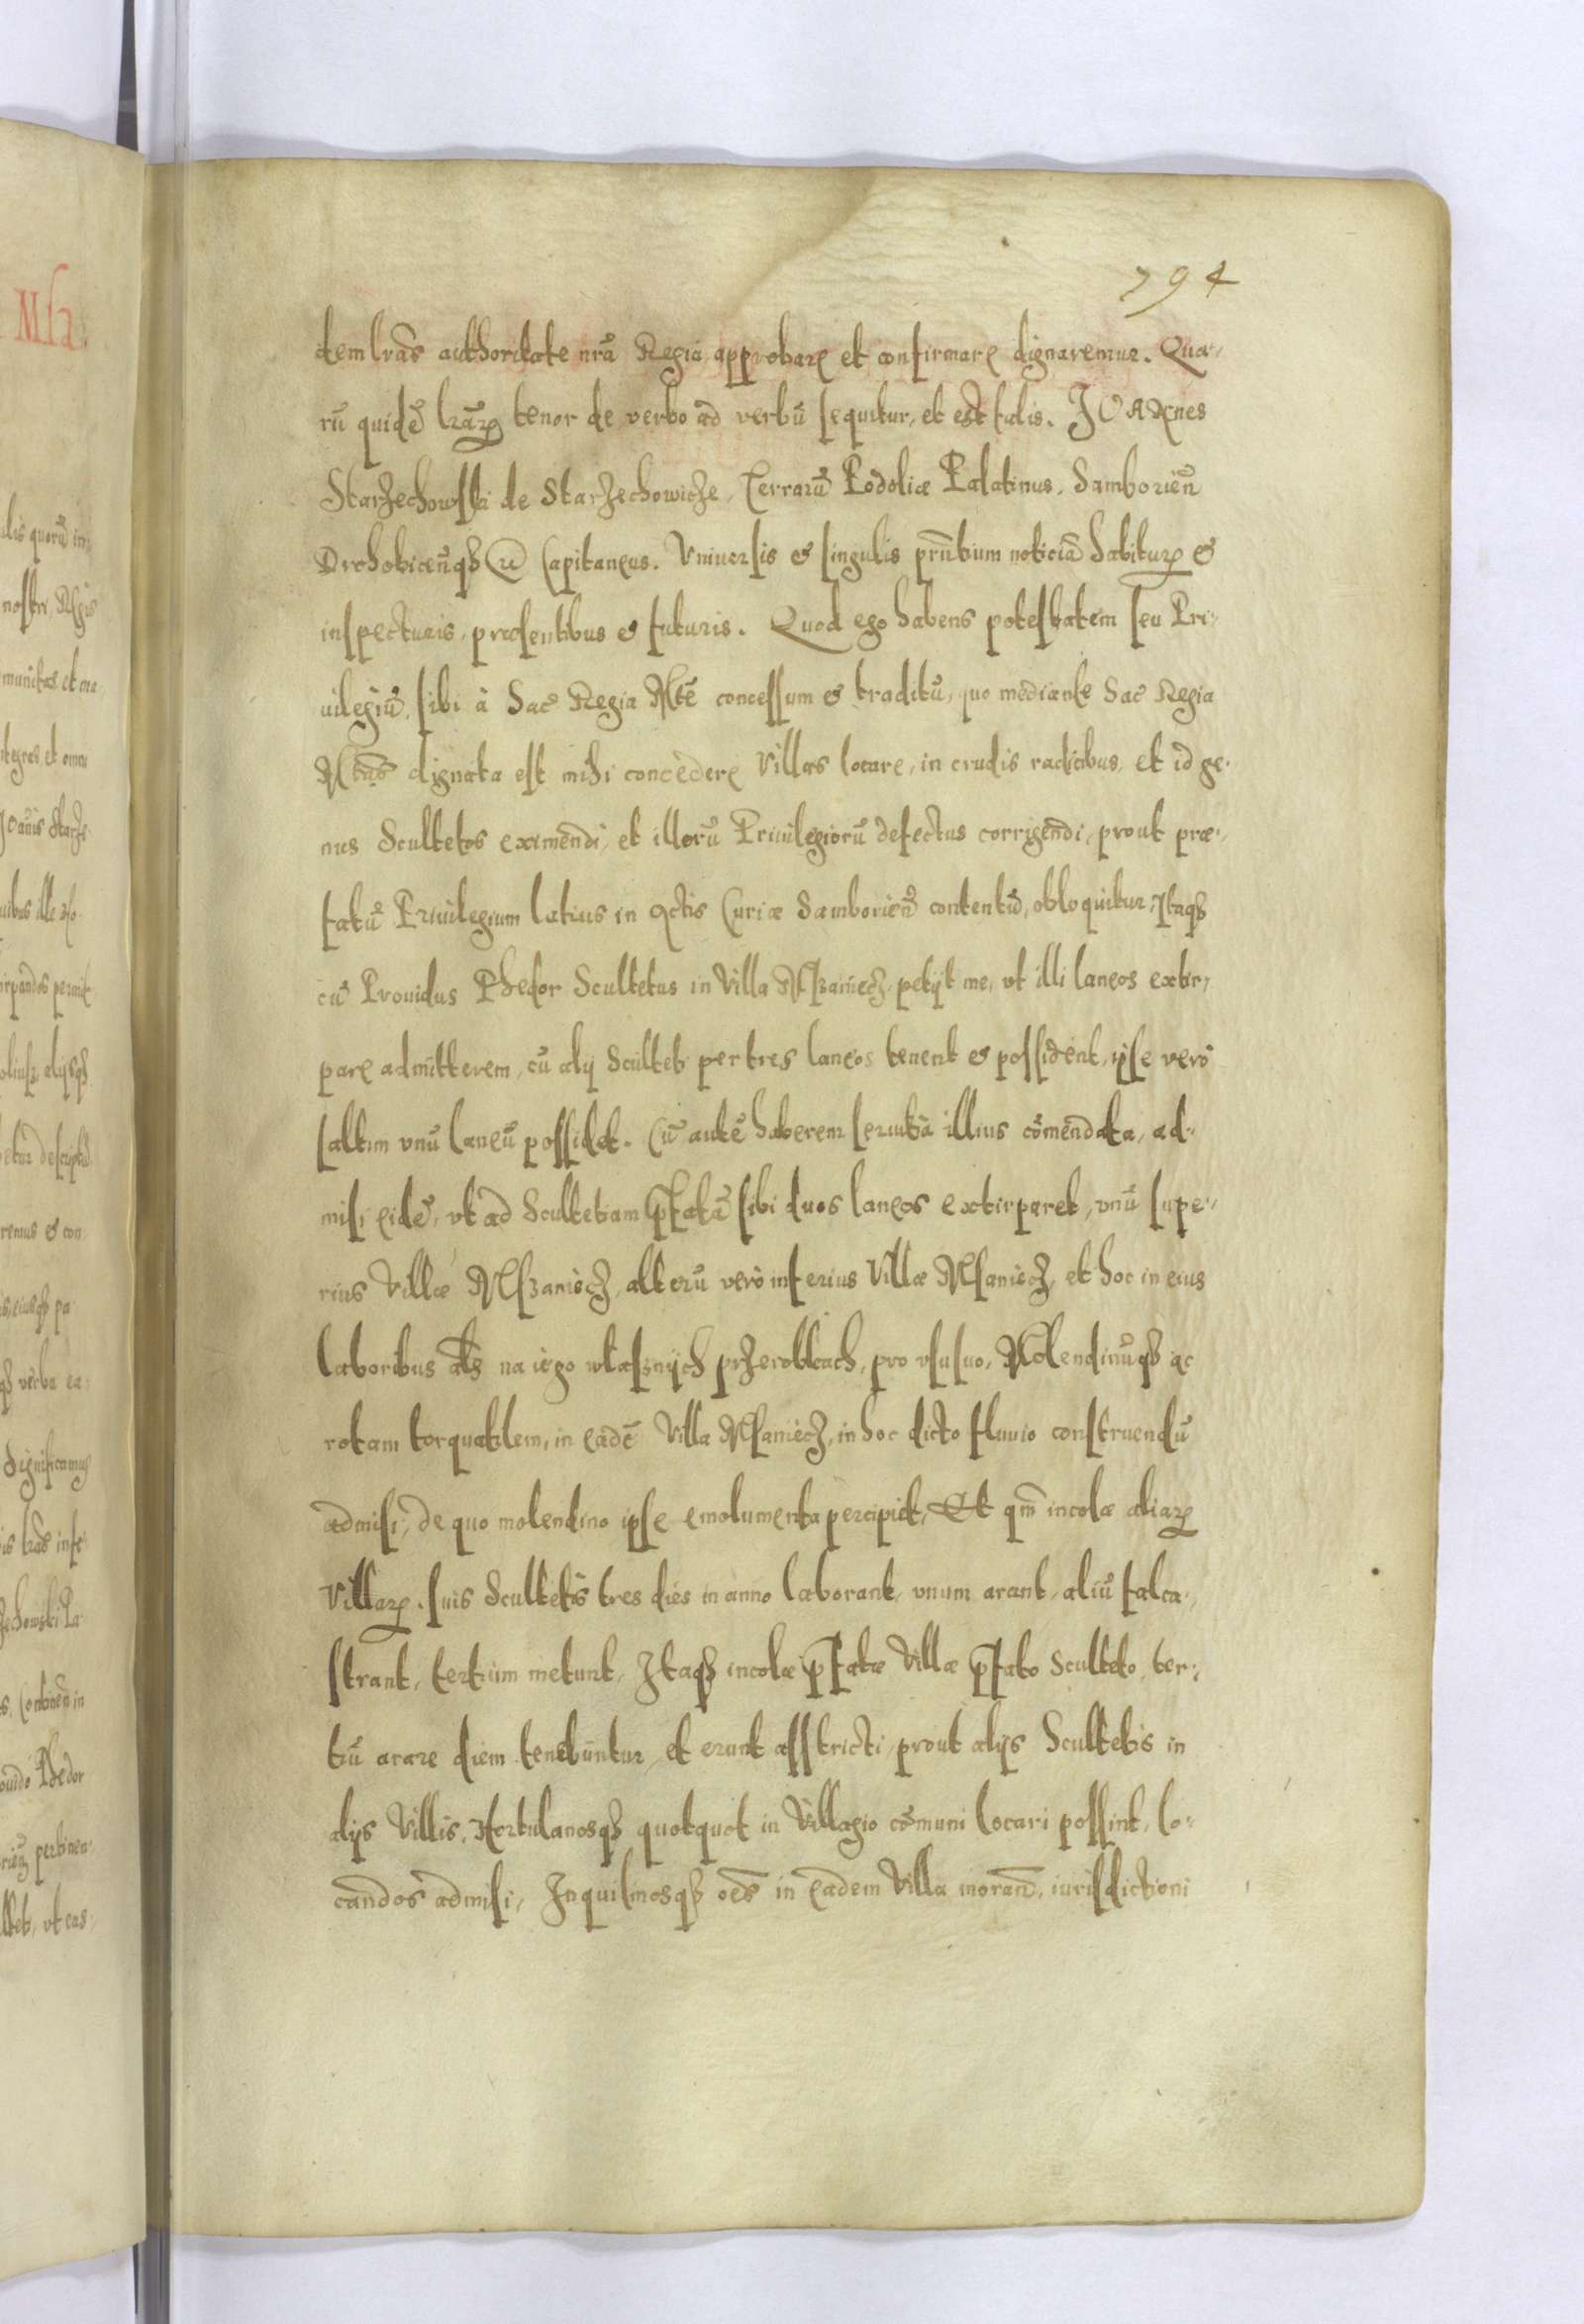 794
dem lrãs authoritate nrã Regia approbare et confirmare dignaremur. Qua-
rũ quidẽ lrãrꝝ tenor de verbo ad verbũ sequitur, et est talis. JOANnes
Starzechowski de Starzechowicze, Terrarũ Podoliæ Palatinus, Samborieñ
Drohobiceñqꝫ Capitaneus. Vniuersis & singulis prñtium noticiã habiturꝝ &
inspecturis, præsentibus & futuris. Quod ego habens potestatem seu Pri-
uilegiũ, sibi à Sac Regia Mtẽ concessum & traditũ, quo mediante Sac Regia
Mtas dignata est mihi concedere Villas locare, in crudis radicibus, et id ge-
nus Scultetos eximendi, et illorũ Priuilegiorũ defectus corrigendi, prout præ-
fatũ Priuilegium latius in Actis Curiæ Samborieñ contentũ, obloquitur, Itaqꝫ
cũ Prouidus Phedor Scultetus in Villa Mszaniecz petijt me, vt illi laneos extir-
pare admitterem, cũ alij Sculteti per tres laneos tenent & possident, ipse verò
saltim vnũ laneũ possidet. Cũ autẽ haberem seruitia illius cõmendata, ad-
misi eidẽ, vt ad Scultetiam p̃fatã sibi duos laneos extirparet, vnũ supe-
rius Villæ Mszaniecz, alterũ verò inferius Villæ Msaniecz, et hoc in eius
laboribus als na iego własznijch przerobkach, pro vsu suo, Molendinũqꝫ ac
rotam torquatilem, in eadẽ Villa Msaniecz, in hoc dicto fluuio construendũ
admisi, de quo molendino ipse emolumenta percipiet, Et qm̃ incolæ aliarꝝ
Villarꝝ suis Scultetis tres dies in anno laborant, vnum arant, aliũ falca-
strant, tertium metunt, Itaqꝫ incolæ p̃fatæ Villæ p̃fato Sculteto, ter-
tiũ arare diem tenebuntur, et erunt asstricti, prout alijs Scultetis in
alijs Villis, Hortulanosqꝫ quotquot in Villagio cõmuni locari possint, lo-
candos admisi, Inquilinosqꝫ oẽs in eadem Villa morañ, iurisdictioni